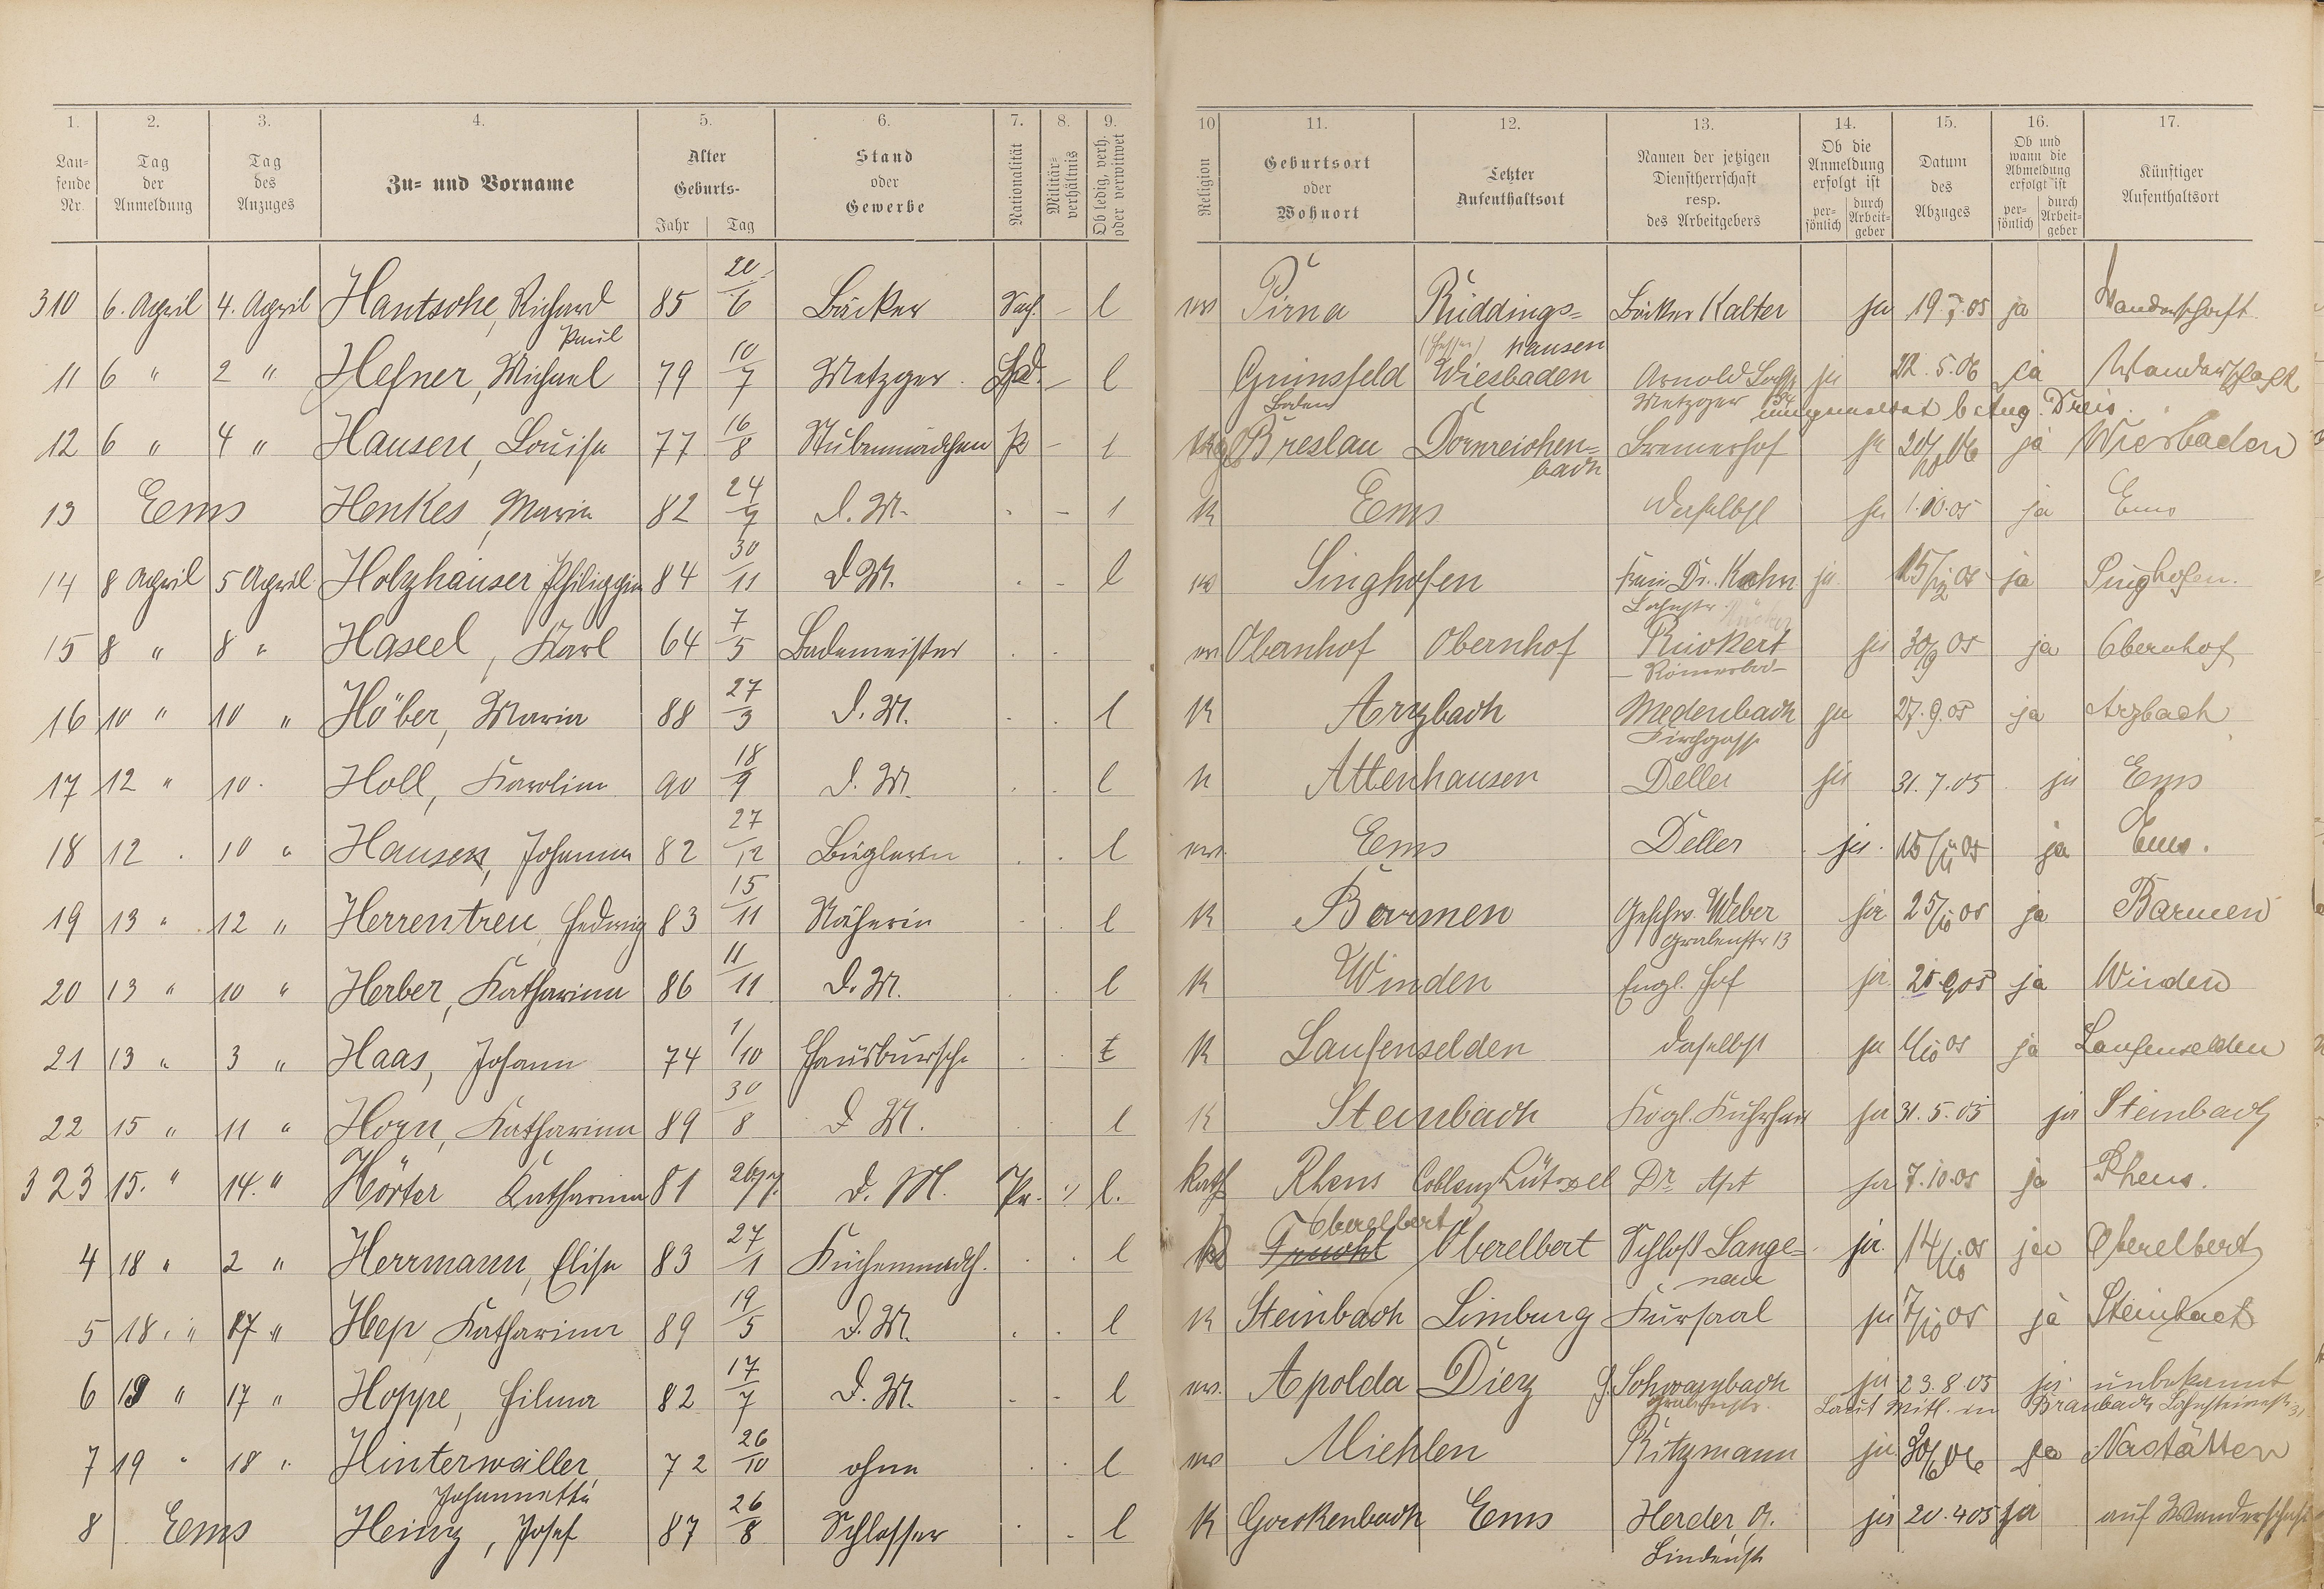 1. 2. 3. 4. 5. 6. 7. 8. 9. 10 11. 12. 13. 14. 15. 16. 17.
Lau-fende Nr. Tag der Anmeldung Tag des Anzuges Zu- und Vorname Alter Geburts- Jahr Tag Stand oder Gewerbe Nationalität Militär-verhältnis Ob ledig, verh. oder verwitwet Religion Geburtsort oder Wohnort Letzter Aufenthaltsort Namen der jetzigen Dienstherrschaft resp. des Arbeitgebers Ob die Anmeldung erfolgt ist per-sönlich durch Arbeit-geber Datum des Abzuges Ob und wann die Abmeldung erfolgt ist per-sönlich durch Arbeit-geber Künftiger Aufenthaltsort
310 6. April 4. April Hantsche, Richard 85 20/6 Bäcker Sach. - l Pirna Rüddings= Bäcker Kalter ja 19. 7. 05 ja Wanderschaft
Paul hausen
11 6 " 2 " Hefner, Michael 79 10/7 Metzger Bad. - l Grünsfeld Wiesbaden Arnold ja 22. 5. 06 ja Wanderschaft
Baden Metzger b Aug. Dreis.
12 6 " 4 " Hausen, Louise 77 16/8 Stubenmädchen P - l Breslau Dornreichen= Bremerhof ja 20/10 06 ja Wiesbaden
bach
13 Ems Henkes, Maria 82 24/7 D. M. - l K Ems daselbst ja 1.10.05 ja Ems
14 8 April 5 April Holzhäuser Philippin 84 30/11 D M. - l Singhofen Frau Dr. Kahn ja 15/12 05 ja Singhofen.
Lahnstr.
15 8 " 8 " Haseel, Karl 64 7/5 Bademeister Obernhof Obernhof Rückert ja 30/9 05 ja Obernhof
- Römerbad -
16 10 " 10 " Höber, Maria 88 27/3 D. M. l K Arzbach Medenbach ja 27.9.05 ja Arzbach
Kirchgasse
17 12 " 10 Holl, Karoline 90 18/9 D. M. l K Attenhausen Deller ja 31. 7. 05 ja Ems
18 12 10 " Hausen, Johanna 82 27/12 Büglerin l Ems Deller ja 15/11 05 ja Ems.
19 13 " 12 " Herrentreu, Hedwig 83 15/11 Näherin l K Barmen Geschw. Weber ja 25/10 05 ja Barmen
Grabenstr 13
20 13 " 10 " Herber, Katharina 86 11/11 D. M. l K Winden Engl. Hof ja 25.9.05 ja Winden
21 13 " 3 " Haas, Johann 74 1/10 Hausbursche K Laufenselden daselbst ja 1/10 05 ja Laufenselden
22 15 " 11 " Horn, Katharina 89 30/8 D M. l K Steinbach Kögl. Kurhaus ja 31. 5. 05 ja Steinbach
323 15. " 14. " Hörter Katharina 81 D. M. Pr. l. Kath Rhens Coblenz Lützel Dr. Apt ja 7.10.05 ja Rhens.
Oberelbert
4 18 " 2 " Herrmann, Elise 83 27/1 Küchenmädch. l Frucht Oberelbert Schloß Lange= ja 14/10 05 ja Oberelbert
nau
5 18 " 17 " Hep, Katharina 89 19/5 D. M. l K Steinbach Limburg Kursaal ja 7/10 05 ja Steinbach
6 19 " 17 " Hoppe, Hilma 82 17/7 D. M. - l Apolda Diez J. Schwarzbach ja 23. 8. 05 ja unbekannt
Grabenstr. Laut Mitl. in Braubach Lahnsteinerstr. 31
7 19 " 18 " Hinterwäller, 72 26/10 ohne l Miehlen Kitzmann ja 30/6 06 ja Nastätten
Johannette
8 Ems Heinz, Josef 87 26/8 Schlosser - l K Gackenbach Ems Herder, A. ja 20. 4 05 ja auf Wanderschaft
Lindenst